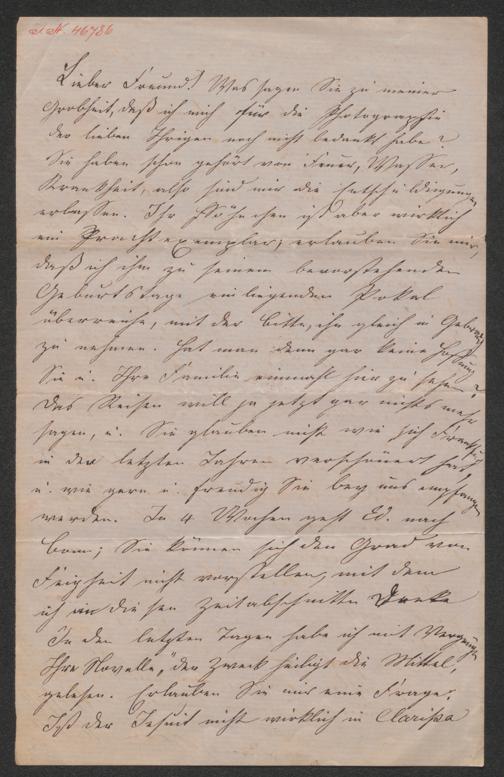 I. N. 46786
Lieber Freund! Was sagen Sie zu meiner
Grobheit, daß ich mich für die Photographie
der lieben Ihrigen noch nicht bedankt habe?
Sie haben schon gehört von Feuer, Wasser,
Krankheit, also sind mir die Entschuldigungen
erlassen. Ihr Söhnchen ist aber wirklich
ein Prachtexemplar; erlauben Sie mir,
daß ich ihm zu seinem bevorstehenden
Geburtstage einliegenden Pokal
überreiche, mit der Bitte, ihn gleich in Gebrauch
zu nehmen. Hat man denn gar keine Hoffnung
Sie u. Ihre Familie einmahl hier zu sehen?
Das Reisen will ja jetzt gar nichts mehr
sagen, u. Sie glauben nicht wie sich Frankfurt
in den letzten Jahren verschönert hat,
u. wie gern u. freudig Sie bey uns empfangen
werden. In 4 Wochen geht Ed. nach
Bonn; Sie können sich den Grad von
Feigheit nicht vorstellen, mit dem
ich an diesen Zeitabschnitt denke
In den letzten Tagen habe ich mit Vergnügen
Ihre Novelle, "der Zweck heiligt die Mittel,
gelesen. Erlauben Sie mir eine Frage,
Ist der Jesuit nicht wirklich in Clarissa